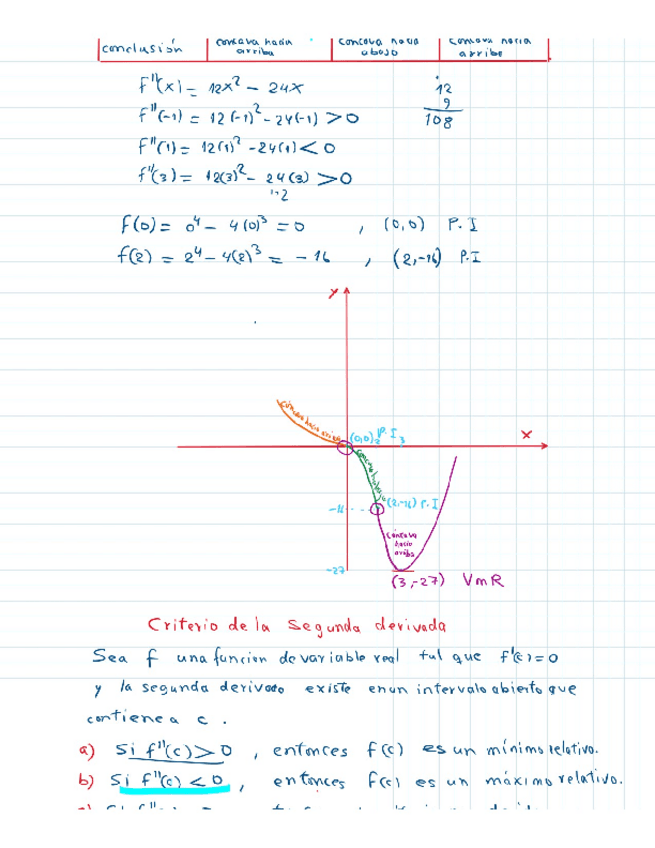 conclusión
concava hacia arriba
concava hacia abajo
concava hacia arriba
f''(x) = 12x² - 24x
f''(-1) = 12(-1)² - 24(-1) > 0
f''(1) = 12(1)² - 24(1) < 0
f''(3) = 12(3)² - 24(3) > 0
12
9
108
f(0) = 0⁴ - 4(0)³ = 0 , (0,0) P.I
f(2) = 2⁴ - 4(2)³ = -16 , (2,-16) P.I
y
x
cóncava hacia arriba
(0,0) P.I
2 3
concava hacia abajo
-16
(2,-16) P.I
cóncava
hacia
arriba
-27
(3,-27) VmR
Criterio de la Segunda derivada
Sea f una funcion de variable real tal que f'(c)=0
y la segunda derivada existe en un intervalo abierto que
contiene a c .
a) Si f''(c) > 0 , entonces f(c) es un mínimo relativo.
b) Si f''(c) < 0 , entonces f(c) es un máximo relativo.